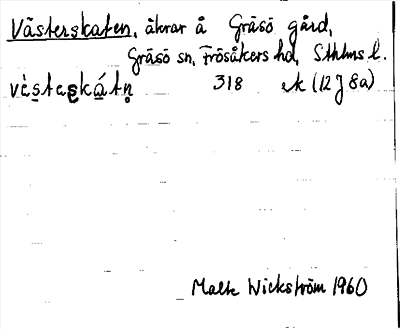 Västerskaten, åkrar å Gräsö gård,
Gräsö sn, Frösåkers hd, Sthlms l.
vèstaskátn 318 ek (12J 8a)
Malte Wickström 1960